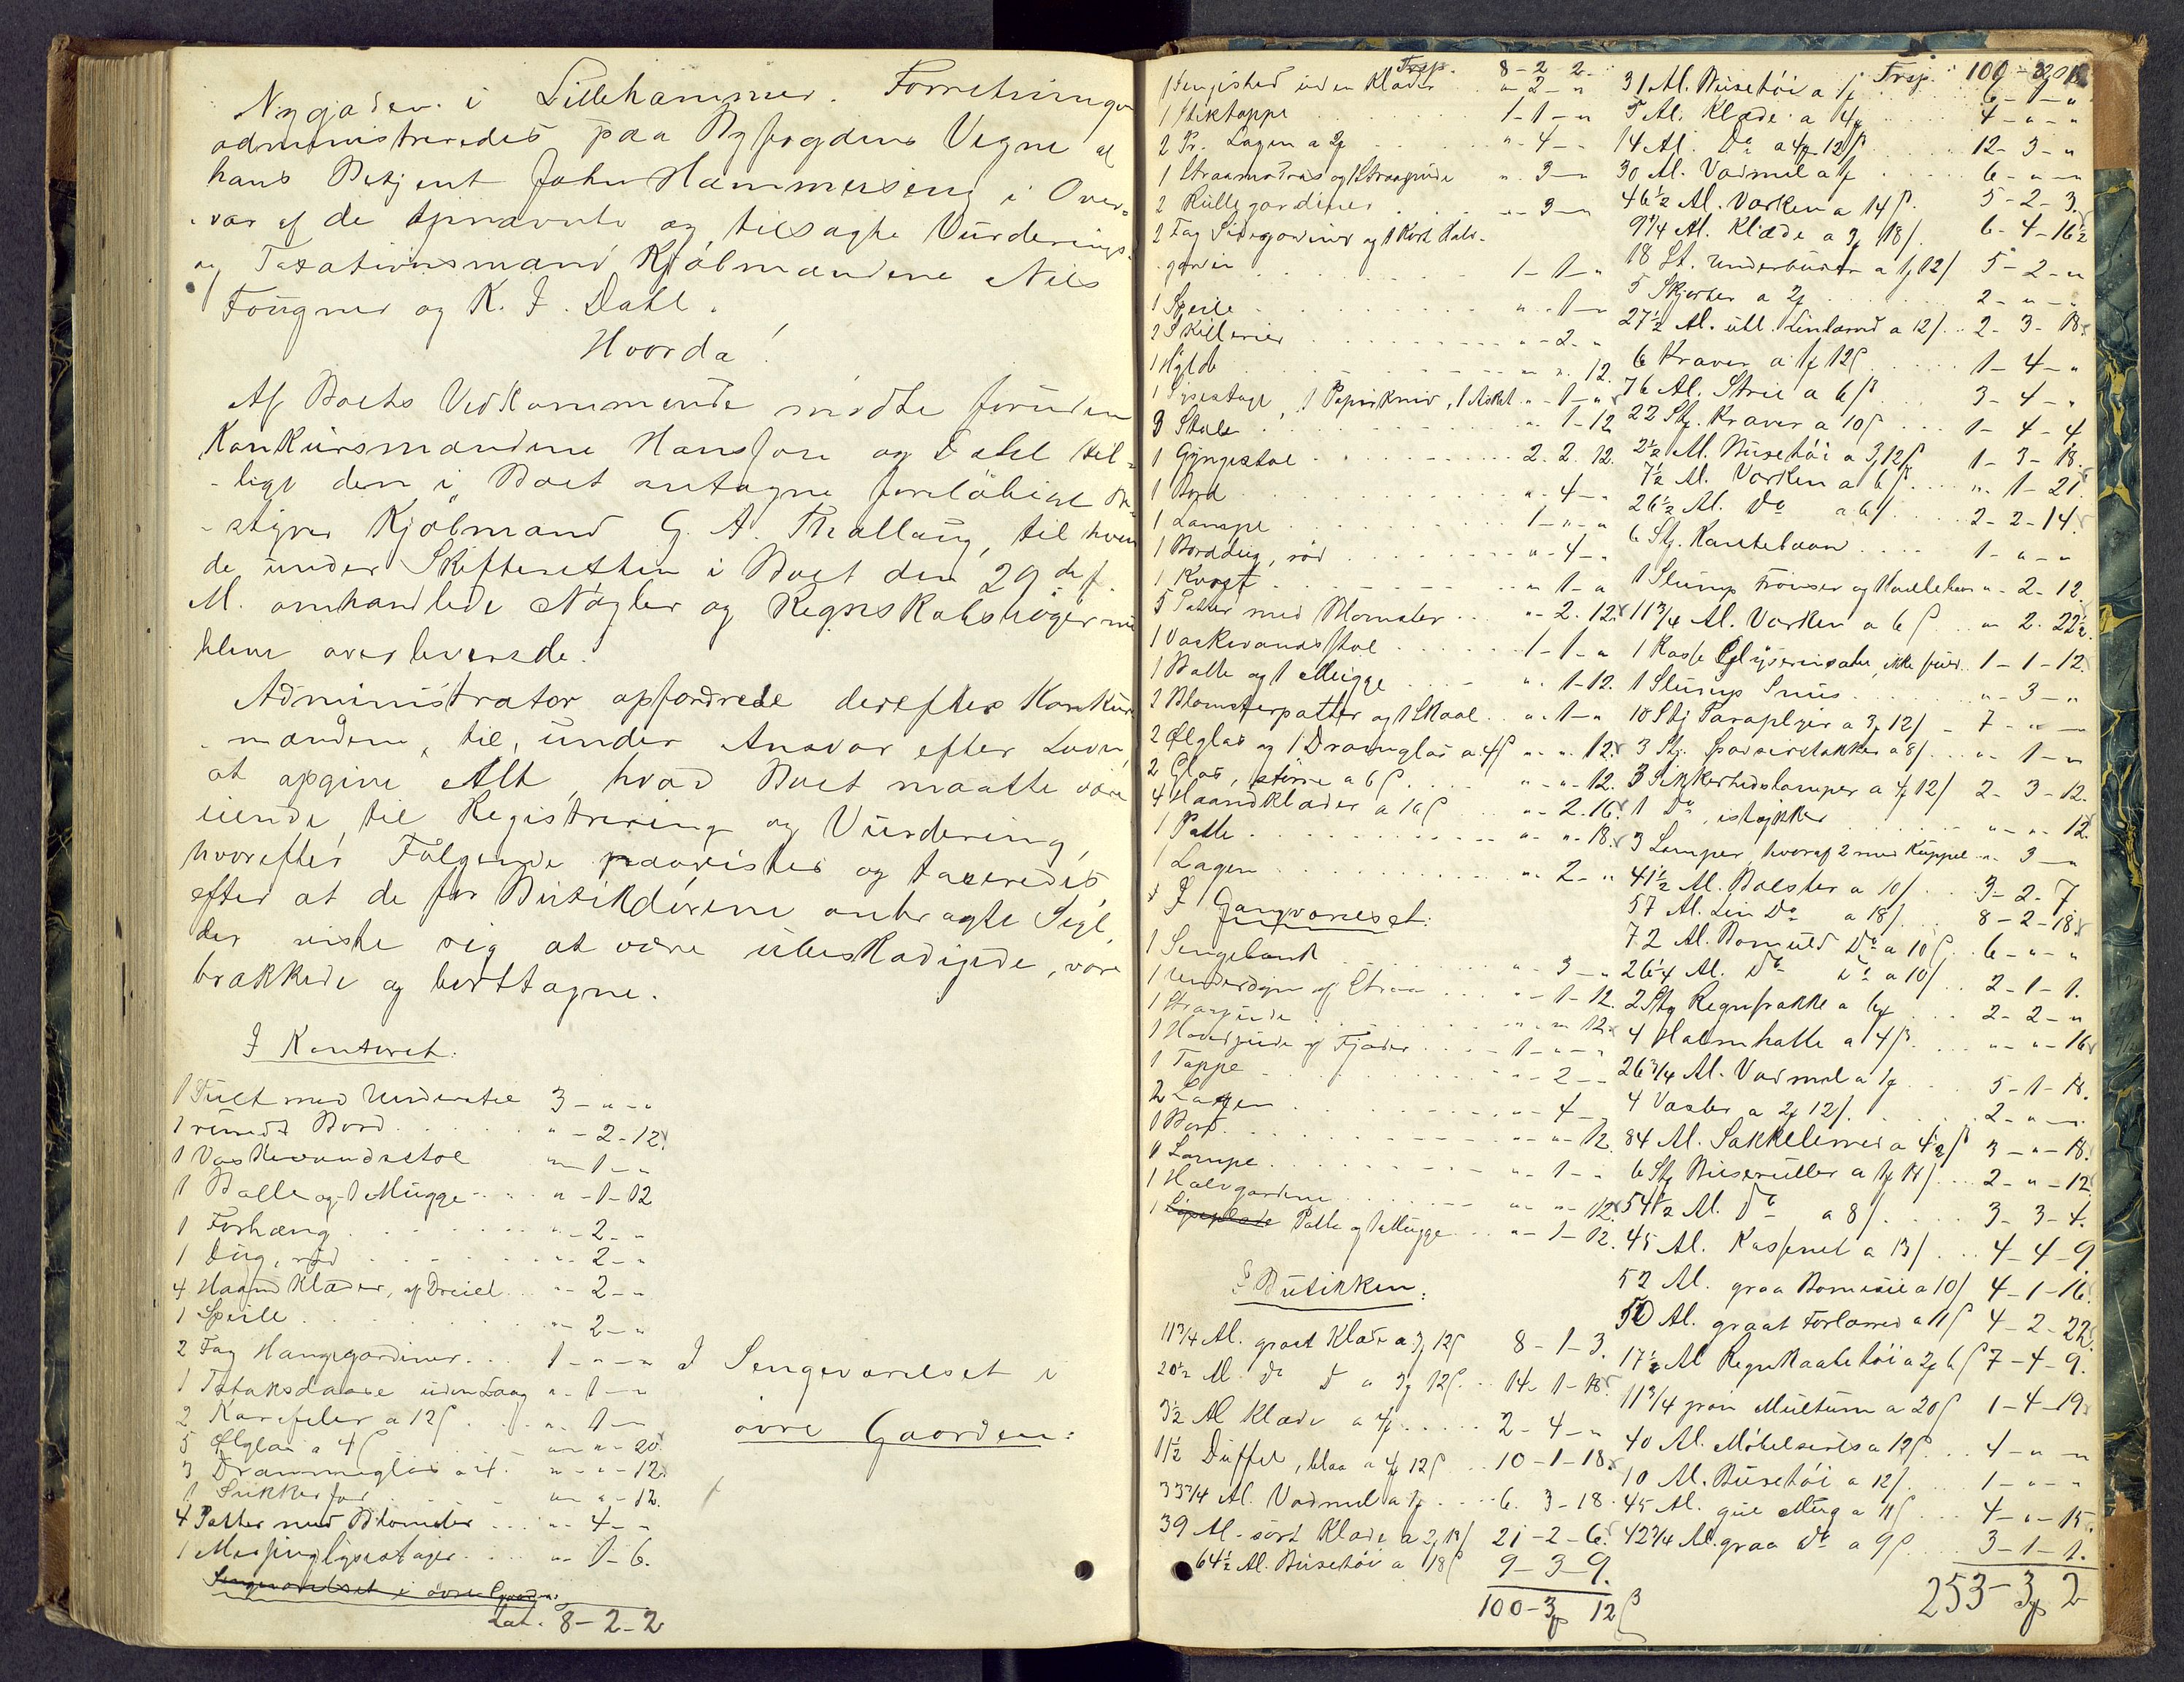 Nygaden i Lillehammer. Forretningen
administreredes paa Byfogdens Vegne af
hans Betjent John Hammerseng i Over-
-vær af de opnævnte og tilsagte Vurderings-
og Taxationsmænd Kjøbmændene Nils
Fougner og K. J. Dahl.
Hvorda!
Af Boets Vedkommende mødte foruden
Konkursmændene Hansson og Dahl til-
-lige den i Boet antagne foreløbige Be-
-styrer Kjøbmand G. A. Thallaug, til hvem
de under Skifteretten i Boet den 29 de f.
M. omhandlede Nøgler og Regnskabsbøger nu
bleve overleverede.
Administrator opfordrede derefter Konkurs-
-mændene, til, under Ansvar efter Loven,
at opgive Alt, hvad Boet maatte være
eiende, til Registrering og Vurdering,
hvorefter Følgende paavistes og taxeredes
efter at de for Butikdørene anbragte Segl,
der viste sig at være ubeskadigede, vare
brækkede og borttagne.
I Kontoret:
1 Pult med Understel 3 - " - "
1 rundt Bord " - 2 - 12.
1 Vaskevandsstol " - 1 - "
1 Balle og 1 Mugge " - 1 - 12
1 Forhæng " - 2 - "
1 Dug, rød " - 2 - "
4 Haandklæder, af Dreiel " - 2 - "
1 Speile " - 2 - "
2 Fag Hængegardiner 1 - " - "
1 Tobaksdaase uden Laag " - 1 - "
2 Karafler a 12 ß " - 1 -
5 Ølglas a 4 ß " - " - 20
3 Drammeglas a 4. " - " - 12
1 Sukkerfad " - " - 12.
4 Potter med Blomster " - 4 - "
1 Messinglysestager " - 1 - 6.
Sengeværelset i øvre Gaarden:
Lat. 8 - 2 - 2
I Sengeværelset i
øvre Gaarden:
Trsp. 8 - 2 - 2
1 Sengested uden Klæder " - 2 - "
1 Stiktæppe 1 - 1 - "
2 Pr. Lagen a 2 " - 4 - "
1 Straamadras og 1 Straapude " - 3 - "
2 Rullegardiner " - 3 - "
2 Fag Sidegardiner og 1 Kort Halv-
gardin 1 - 1 - "
1 Speile " - 1 -
2 Skillerier " - 2 - "
1 Hylde " - " 12.
1 Lysestage, 1 Papirkniv, 1 Asket " - 1 - "
3 Stole " - 1 - 12
1 Gyngestol 2. 2. 12.
1 Bord " - 4 - "
1 Lampe 1 - " - "
1 Borddug, rød " - 4 - "
1 Kurv " 1 - "
5 Potter med Blomster " - 2. 12
1 Vaskevandsstol 1 - 1 - "
1 Balle og 1 Mugge " - 1 - 12.
2 Blomsterpotter og 1 Skaal " - 1 - "
2 Ølglas og 1 Dramglas a 4 ß " - " - 12
2 Glas, større a 6 ß " - " - 12.
4 Haandklæder a 16 ß " - 2. 16
1 Potte " - " - 18.
1 Lagen " 2 - "
I Gangværelset:
1 Sengebænk " - 3 - "
1 Underdyne af Straa " - 1 - 12.
1 Straapude " - " 12
1 Hovedpude af Fjæder 1 - " - "
1 Tæppe " - 2 - "
2 Lagen " - 4 -
1 Bord " - " - 12
1 Lampe " - 1 - "
1 Halvgardine " - " - 12
1 Lyseplade Potte og 1 Mugge " - 1 - 12.
I Butikken:
11 3/4 Al. graat Klæde a 3 12 ß 8 - 1 - 3.
20 1/2 Al. Do Do a 3 12 ß 14 - 1 - 18
3 1/2 Al Klæde a 4 2 - 4 - "
11 1/2 Duffel, blaa a 4 12 ß 10 - 1 - 18
33 3/4 Al. Vadmel a 1 6. 3 - 18.
39 Al. sort Klæde a 2 18 ß 21 - 2 - 6
64 1/2 Al. Buxetøi a 18 ß 9 - 3 - 9.
100 - 3 12 ß
Trsp. 100 - 3 - 12
31 Al. Buxetøi a 1 6 - 1 - "
5 Al. Klæde a 4 4 - " - "
14 Al. Do a 4 12 ß 12 - 3 - "
30 Al. Vadmel a 1 6 - " - "
46 1/2 Al. Værken a 14 ß 5 - 2 - 3.
9 1/4 Al. Klæde a 3 18 ß 6 - 4 - 16 1/2
18 St. Underbuxer a 1 12 ß 5 - 2 - "
5 Skjorter a 2 2 - " - "
27 1/2 Al. ubl. Linlærred a 12 ß 2 - 3 - 18
6 Kraver a 1 12 ß 1 - 4 - "
76 Al. Strie a 6 ß 3 - 4 - "
22 Stk. Kraver a 10 ß 1 - 4 - 4
2 1/2 Al. Buxetøi a 3 12 ß 1 - 3 - 18.
7 1/2 Al. Værken a 6 ß " - 1 - 21
26 1/2 Al. Do a 6 ß 2 - 2 - 14
6 Stk. Kantebaand 1 - " - "
1 Slump Frynser og " - 2 - 12.
11 3/4 Al. Værken a 6 ß " 2. 22 1/2
1 Kasse Glycerinsæbe, ikke fuld 1 - 1 - 12
1 Slump Snus " - 3 - "
10 Stk Paraplyer a 3 12 ß 7 - " -
3 Stk. Spadserstokker a 8 ß " - 1 - "
3 Sikkerhedslamper a 4 12 ß 2 - 3 - 12.
1 Do, istykker " - " - 12
3 Lamper, hvoraf 2 med Kuppel " 3 - "
41 1/2 Al. Bolster a 10 ß 3 - 2 - 7
57 Al. Lin Do a 18 ß 8 - 2 - 18
72 Al. Bomuld Do a 10 ß 6 - " - "
26 1/4 Al. Do Do a 10 ß 2 - 1 - 1.
2 Stk Regnfrakke a 6 2 - 2 - "
4 Halmhatte a 4 ß " - " - 16
26 3/4 Al. Vadmel a 1 5 - 1 - 18.
4 Vester a 2 12 ß 2 - " - "
84 Al. Sækkelerred a 4 1/2 ß 3 - " - 18.
6 Stk Buxeruller a 1 18 ß 2 - " - 12
54 1/2 Al. Do a 8 ß 3 - 3 - 4.
45 Al. Kassenet a 13 ß 4 - 4 - 9
52 Al. graa Bomesie a 10 ß 4 - 1 - 16
50 Al. graat Forlærred a 11 ß 4 - 2 - 22
17 1/2 Al Regnkaabetøi a 2 6 ß 7 - 4 - 9.
11 3/4 grøn Multum a 20 ß 1 - 4 - 19
40 Al. Møbelsirts a 12 ß 4 - " - "
10 Al. Buxetøi a 12 ß 1 - " - "
45 Al. gul Meg a 11 ß 4 - " - 15
42 3/4 Al. graa Do a 9 ß 3 - 1 - 1.
253 - 3 2